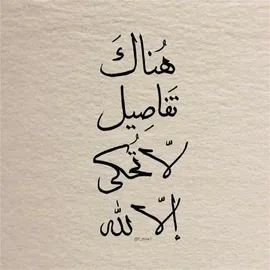 هُنَاكَ
تَفَاصِيل
لَا تُحْكَى
إلّا لله